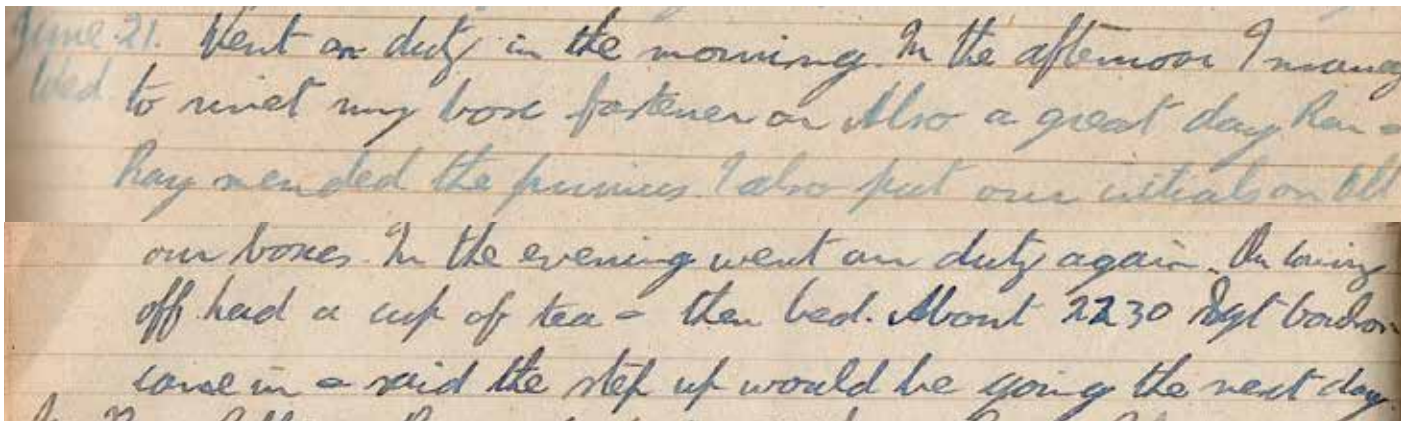 June 21. Went on duty in the morning. In the afternoon I manag
Wed. to rivet my box fastener on Also a great day Ron -
Ray mended the primus. I also put our initials on all
our boxes. In the evening went on duty again. On coming
off had a cup of tea - then bed. About 2230 Sgt
came in - said the step up would be going the next day.